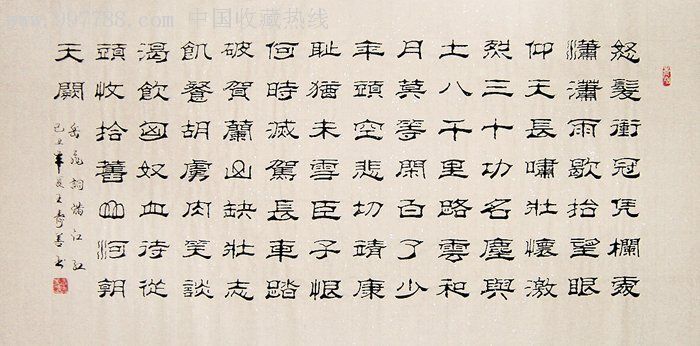 www.997788.com 中国收藏热线
怒髮衝冠凭欄處
瀟瀟雨歇抬望眼
仰天長嘯壯懷激
烈三十功名塵與
土八千里路雲和
月莫等閑白了少
年頭空悲切靖康
恥猶未雪臣子恨
何時滅駕長車踏
破賀蘭山缺壯志
飢餐胡虜肉笑談
渴飲匈奴血待從
頭收拾舊山河朝
天闕
岳飛詞滿江紅
己丑年夏王壽善書